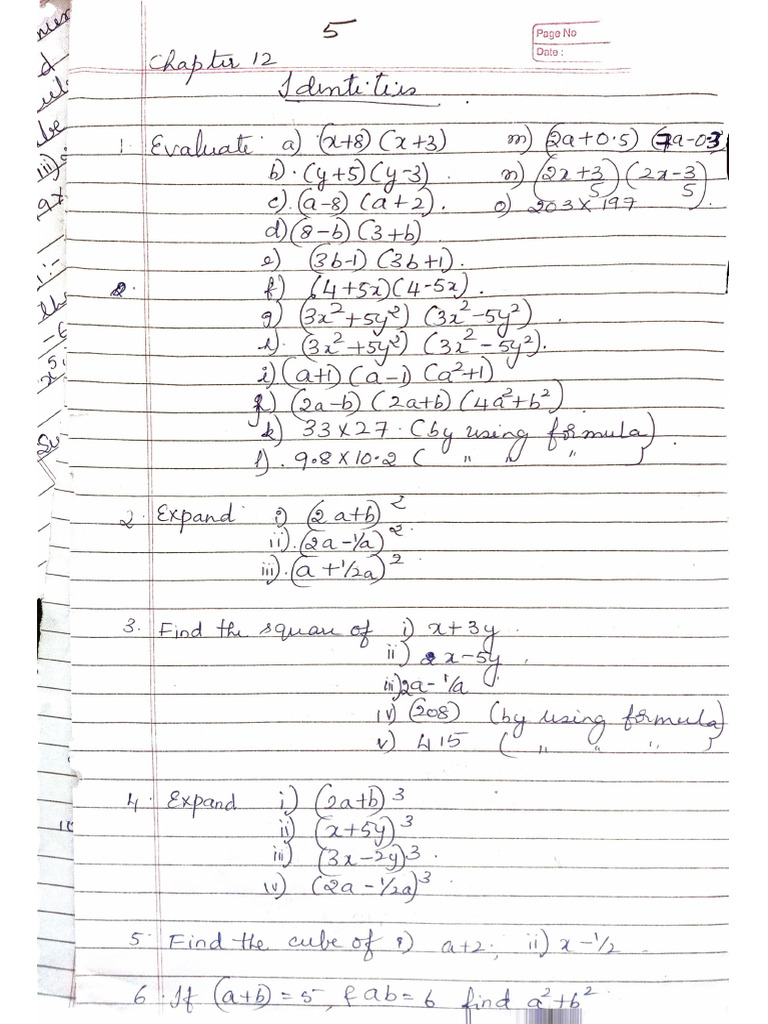 5
Page No
Date :
Chapter 12
Identities
1. Evaluate a) (x+8) (x+3) m) (2a+0.5) (7a-0.3)
b) (y+5)(y-3) n) (2x+3/5) (2x-3/5)
c) (a-8) (a+2). o) 203×197
d) (8-b) (3+b)
e) (3b-1) (3b+1).
f) (4+5x)(4-5x).
g) (3x²+5y²) (3x²-5y²)
h) (3x²+5y²) (3x²-5y²).
i) (a+1) (a-1) (a²+1)
j) (2a-b) (2a+b) (4a²+b²)
k) 33×27. (by using formula)
l) 9.8×10.2 ( " " " )
2. Expand i) (2a+b)²
ii) (2a-1/a)²
iii) (a+1/2a)²
3. Find the square of i) x+3y.
ii) x-5y.
iii) 2a-1/a
iv) (208) (by using formula)
v) 415 ( " " " )
4. Expand i) (2a+b)³
ii) (x+5y)³
iii) (3x-2y)³.
iv) (2a-1/2a)³
5. Find the cube of i) a+2; ii) x-1/2.
6. If (a+b)=5, & ab=6 find a²+b²